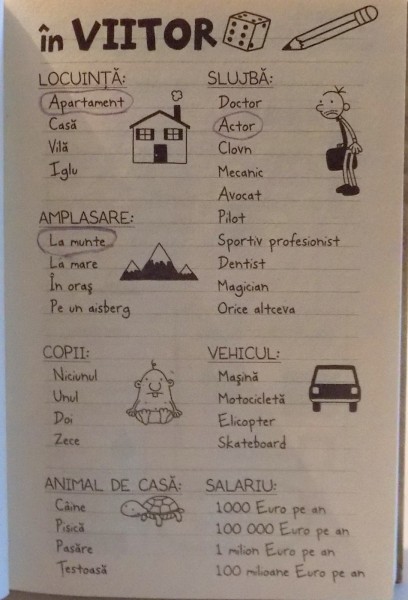 în VIITOR
LOCUINȚĂ:
Apartament
Casă
Vilă
Iglu
SLUJBĂ:
Doctor
Actor
Clovn
Mecanic
Avocat
Pilot
Sportiv profesionist
Dentist
Magician
Orice altceva
AMPLASARE:
La munte
La mare
În oraș
Pe un aisberg
COPII:
Niciunul
Unul
Doi
Zece
VEHICUL:
Mașină
Motocicletă
Elicopter
Skateboard
ANIMAL DE CASĂ:
Câine
Pisică
Pasăre
Țestoasă
SALARIU:
1000 Euro pe an
100 000 Euro pe an
1 milion Euro pe an
100 milioane Euro pe an